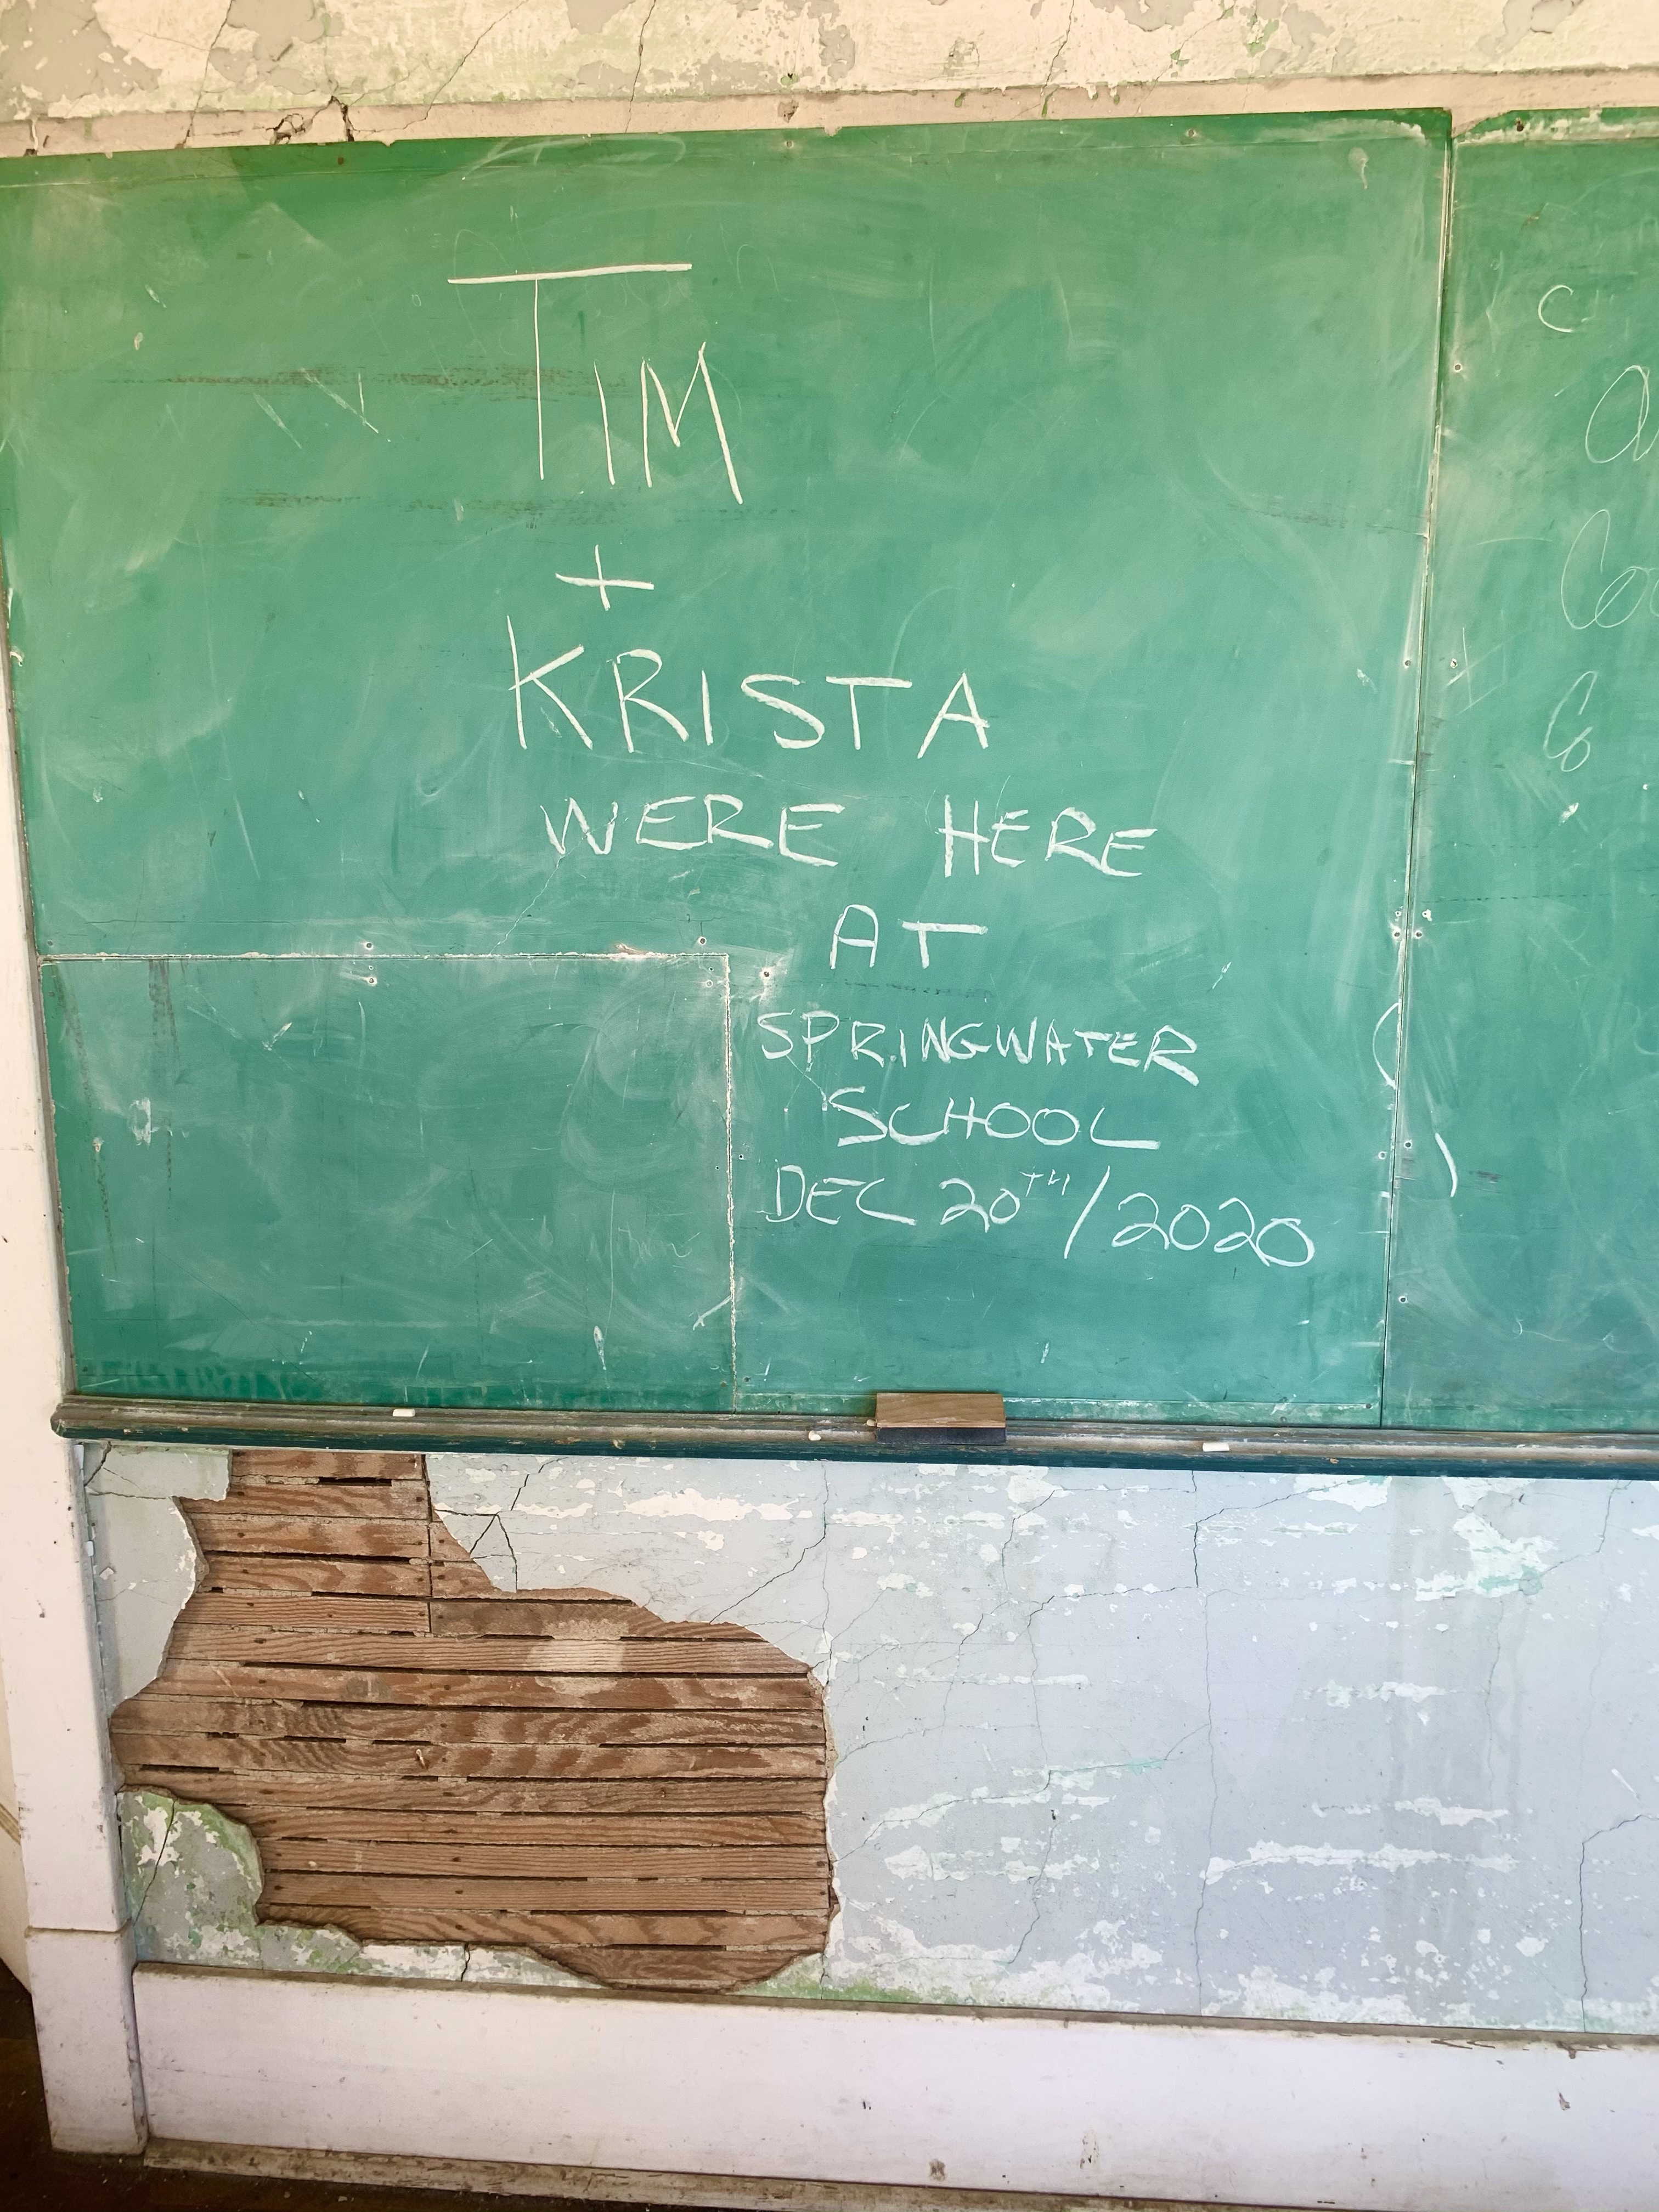 TIM
+
KRISTA
WERE HERE
AT
SPRINGWATER
SCHOOL
DEC 20TH/2020